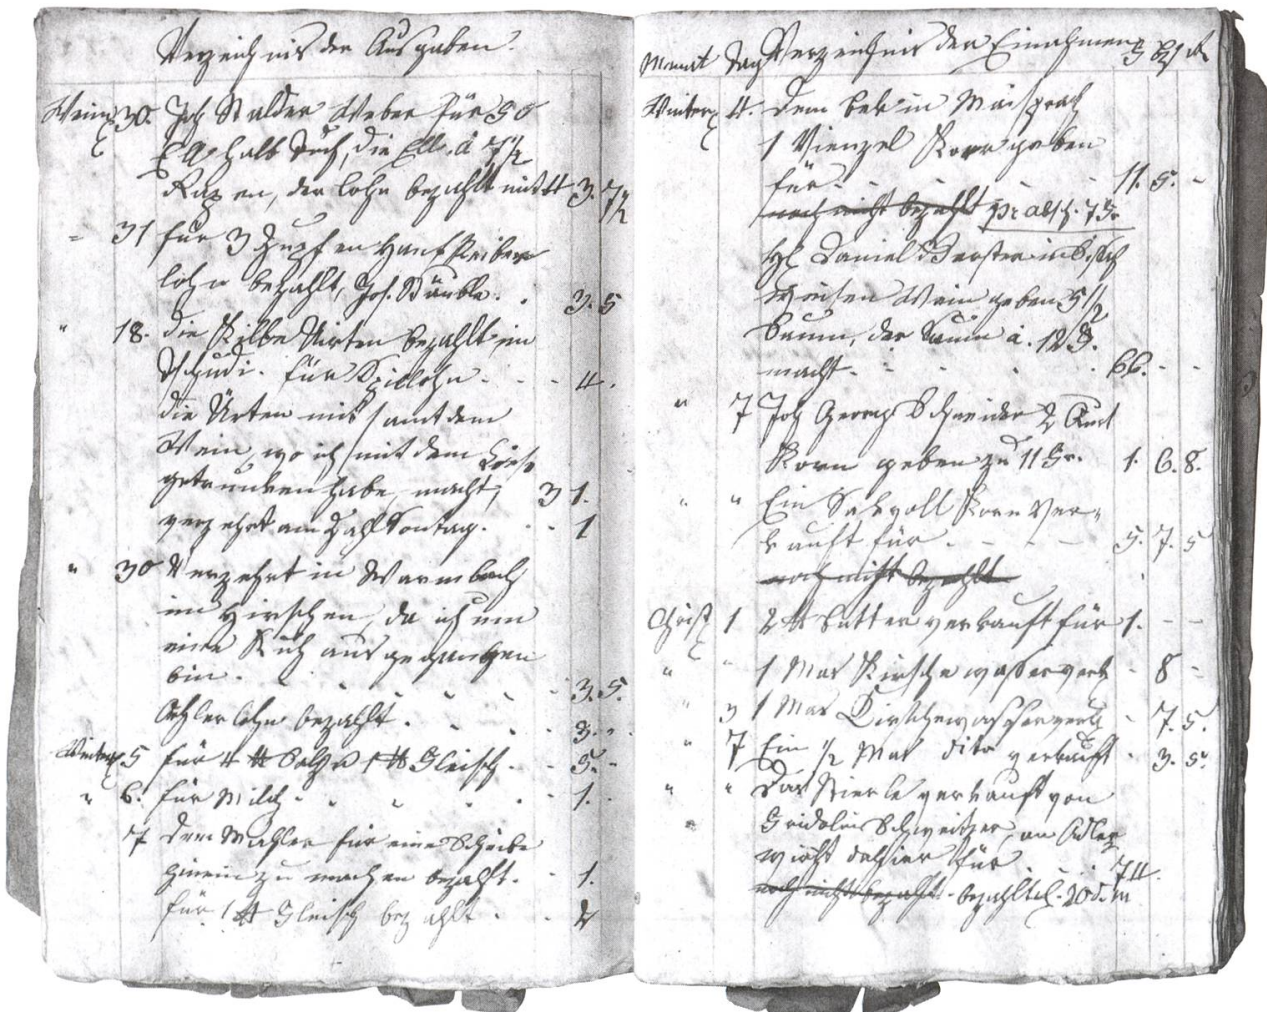 Verzeichnis der Ausgaben.
Weinm. 30. Joh Stalder Weber für 50
Ell. halb Tuch, die Ell. à 7 1/2
Rapen, den lohn bezahlt mit ℔ 3. 7 1/2
" 31 für 3
lohn bezahlt, Jos. Bäuble. . 3. 5
" 18. die Kilbe Ürten bezahlt im
Tschudi. für Spillohn. - - - 4.
die Ürten mit samt dem
Wein, wo ich mit dem
getrunken habe, macht, 3 1.
verzehrt am Sontag. - - 1
" 30 Verzehrt in Warmbach
im Hirschen, da ich um
eine Kuh aus gegangen
bin. - - - - - 3. 5.
lohn bezahlt. - - - 3. -
Winterm 5 für 4 ℔ Salz u 1 ℔ Fleisch. - - 5. -
" 6. für Milch - - - - - 1. -
7 dem Mahler für eine Scheibe
hinein zu machen bezahlt. - 1.
für 1 ℔ Fleisch bezahlt. - - 2
Monat Tag Verzeichnis der Einahmen
Winterm 4. dem bek in Maisprach
1 Vienzel Korn geben
für - - - - - 11. 5. -
noch nicht bezahlt
Daniel
weisen Wein geben 5 1/2
Saum, der Saum à. 12 G.
macht - - - - - 66. - -
" 7 Joh Georg Schneider 2
Korn geben zu 11 G. 1. 6. 8.
" " Ein Sakvoll Korn Ver-
kauft für - - - - 5. 7. 5
noch nicht bezahlt
Christm 1 2 ℔ Butter verkauft für 1. - -
" " 1 Mas Kirschewasser verk - 8 -
" 3 1 Mas Kirschewasser verk - 7. 5.
" 7 Ein 1/2 Mas dito verkauft - 3. 5.
" " Das Stierle verkauft von
" Fridolin Schweitzer, an Adler
wirth dahier für - - - 74.
noch nicht bezahlt - bezahlt d. 20 d. M